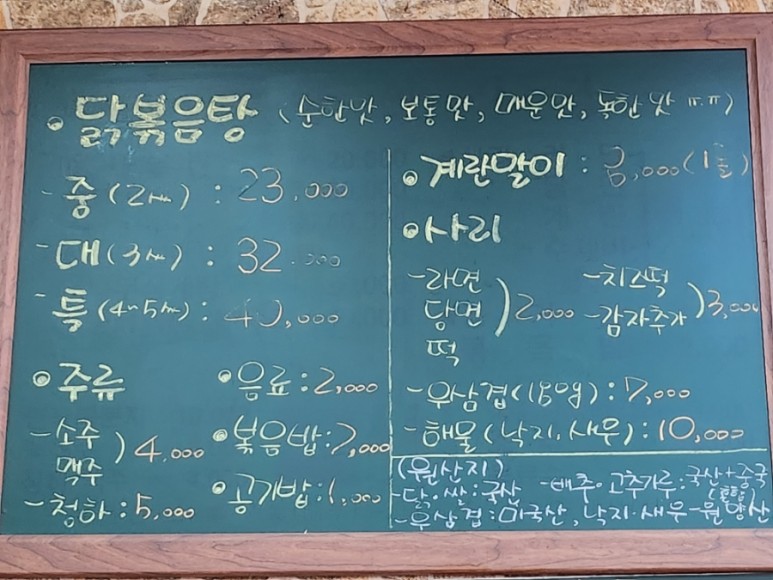 • 닭볶음탕 (순한맛, 보통맛, 매운맛, 독한맛 ㅠ.ㅠ)
- 중(2인) : 23,000
- 대(3인) : 32,000
- 특(4~5인) : 40,000
• 주류
- 소주
맥주 ) 4,000
- 청하 : 5,000
• 음료 : 2,000
• 볶음밥 :
• 공기밥 : 1,000
• 계란말이 :
• 사리
- 라면
당면 ) 2,000
떡
- 치즈떡
- 감자추가 ) 3,000
- 우삼겹(180g) : 7,000
- 해물(낙지.새우) : 10,000
(원산지)
- 닭·쌀 : 국산 - 배추·고추가루 : 국산+중국
- 우삼겹 : 미국산, 낙지·새우 - 원양산